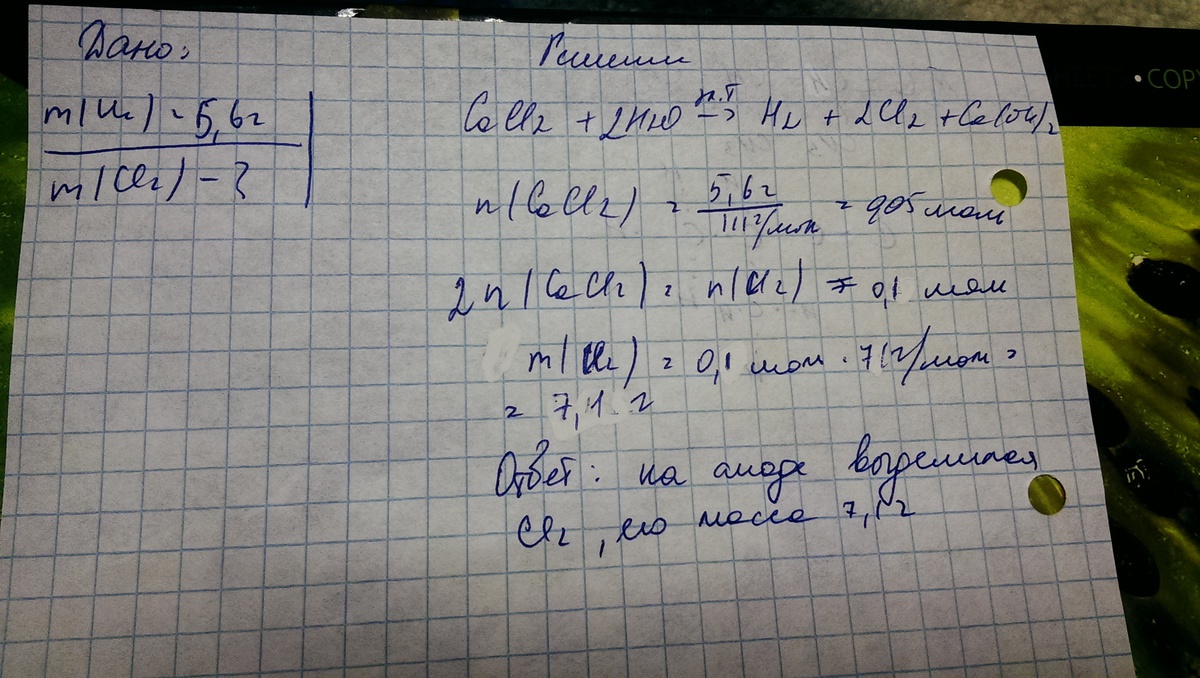 Дано:
m(Cl₂) = 5,6г
m(Cl₂) - ?
Решение
CaCl₂ + 2H₂O эл.т → H₂ + 2Cl₂ + Ca(OH)₂
n(CaCl₂) = 5,6г / 111г/моль = 0,05 моль
2n(CaCl₂) = n(Cl₂) = 0,1 моль
m(Cl₂) = 0,1 моль · 71г/моль =
= 7,1 г
Ответ: на аноде выделился
Cl₂, его масса 7,1г
COPY